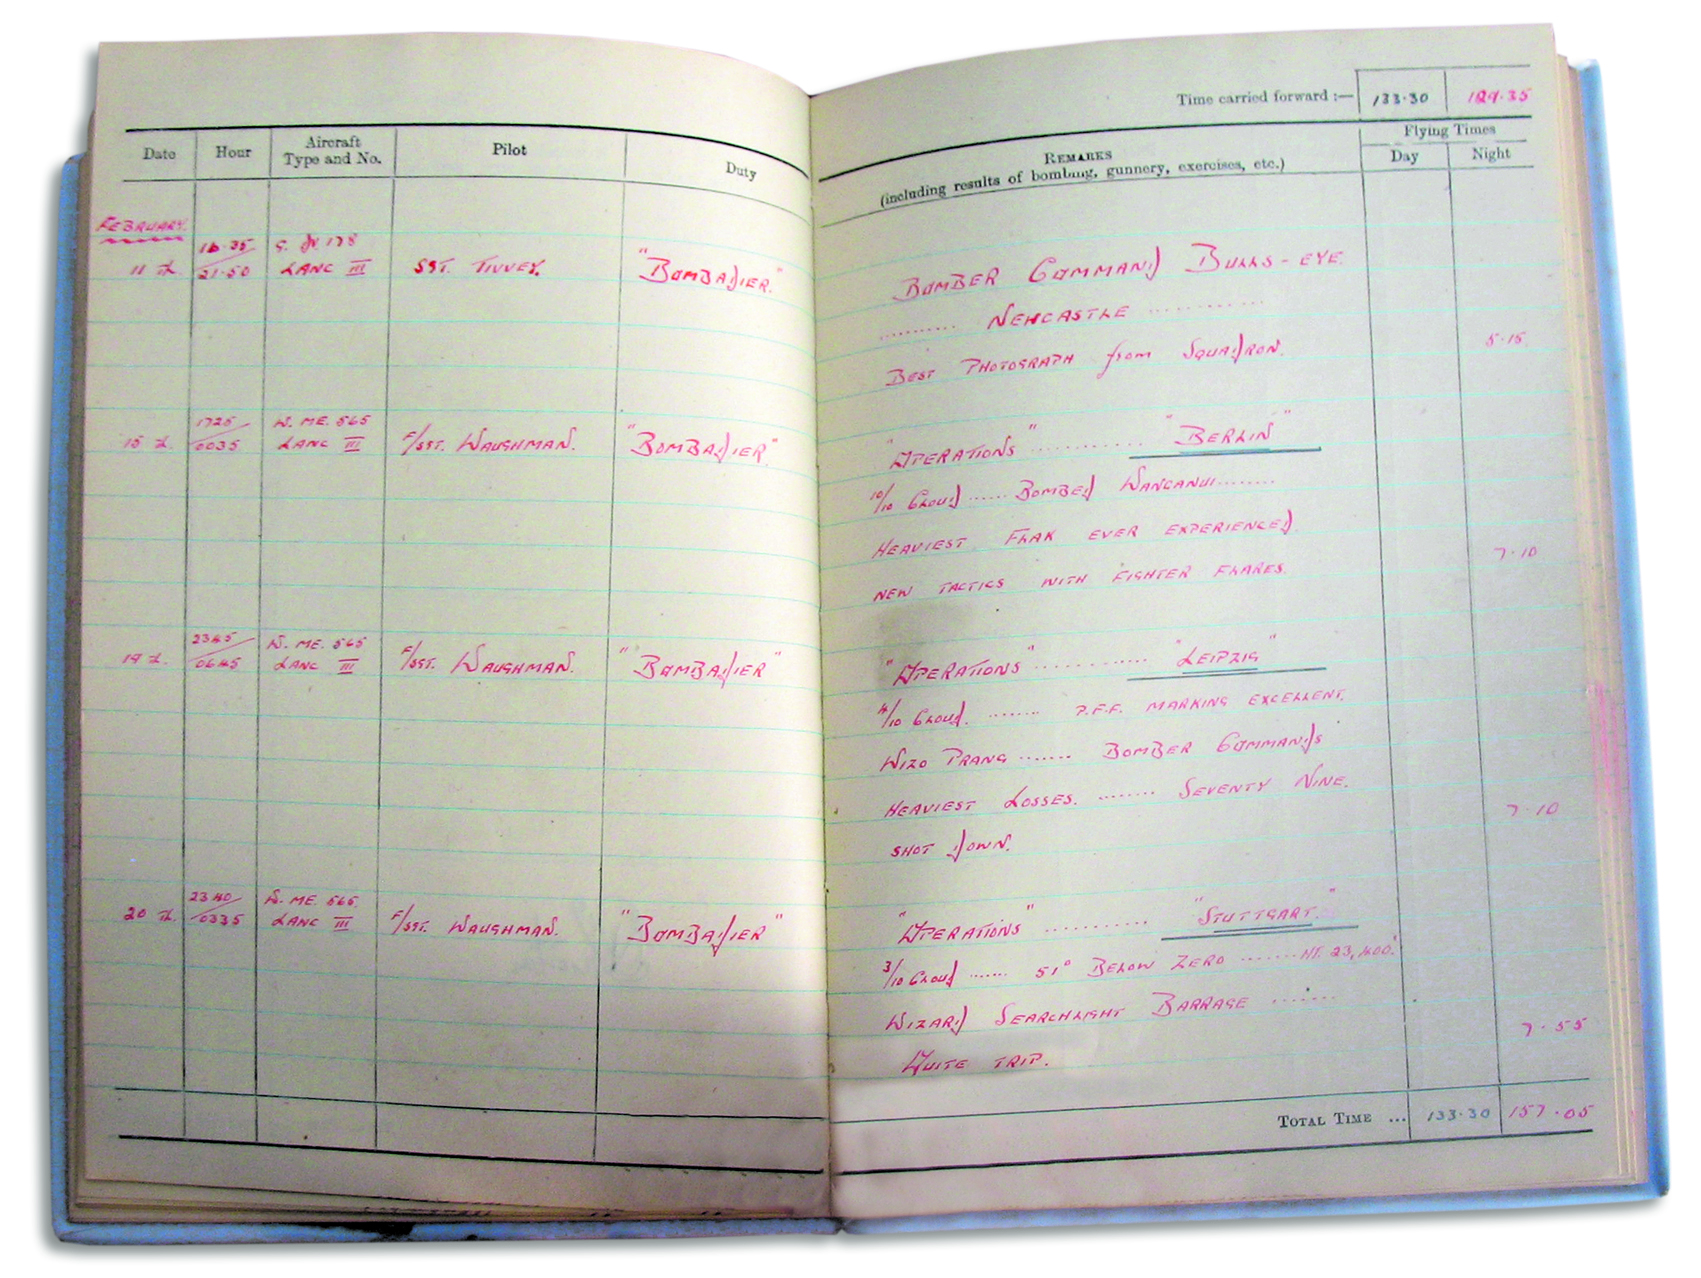 Time carried forward :— 133.30 129.35
Date Hour Aircraft Type and No. Pilot Duty
REMARKS (including results of bombing, gunnery, exercises, etc.)
Flying Times
Day Night
FEBRUARY.
11 th. 16.35/21.50 LANC III SGT. TIVVEY. "BOMBADIER."
BOMBER COMMAND BULLS-EYE.
......... NEWCASTLE .........
BEST PHOTOGRAPH from SQUADRON. 5.15.
15 th. 1725/0035 W. ME. 565 LANC III F/SGT. WAUGHMAN. "BOMBADIER."
"OPERATIONS" ......... "BERLIN"
10/10 CLOUD ...... BOMBED WANGANUI ........
HEAVIEST FLAK EVER EXPERIENCED.
NEW TACTICS WITH FIGHTER FLARES. 7.10
19 th. 2345/0645 W. ME. 565 LANC III F/SGT. WAUGHMAN. "BOMBADIER"
"OPERATIONS" ............ "LEIPZIG"
4/10 CLOUD. ....... P.F.F. MARKING EXCELLENT.
WIZO PRANG ....... BOMBER COMMANDS
HEAVIEST LOSSES. ........ SEVENTY NINE.
SHOT DOWN. 7.10
20 th. 2340/0335 W. ME. 565. LANC III F/SGT. WAUGHMAN. "BOMBADIER"
"OPERATIONS" ........... "STUTTGART."
3/10 CLOUD ...... 51° BELOW ZERO ....... HT. 23,400'.
WIZARD SEARCHLIGHT BARRAGE .......
QUITE TRIP. 7.55
TOTAL TIME ... 133.30 157.05